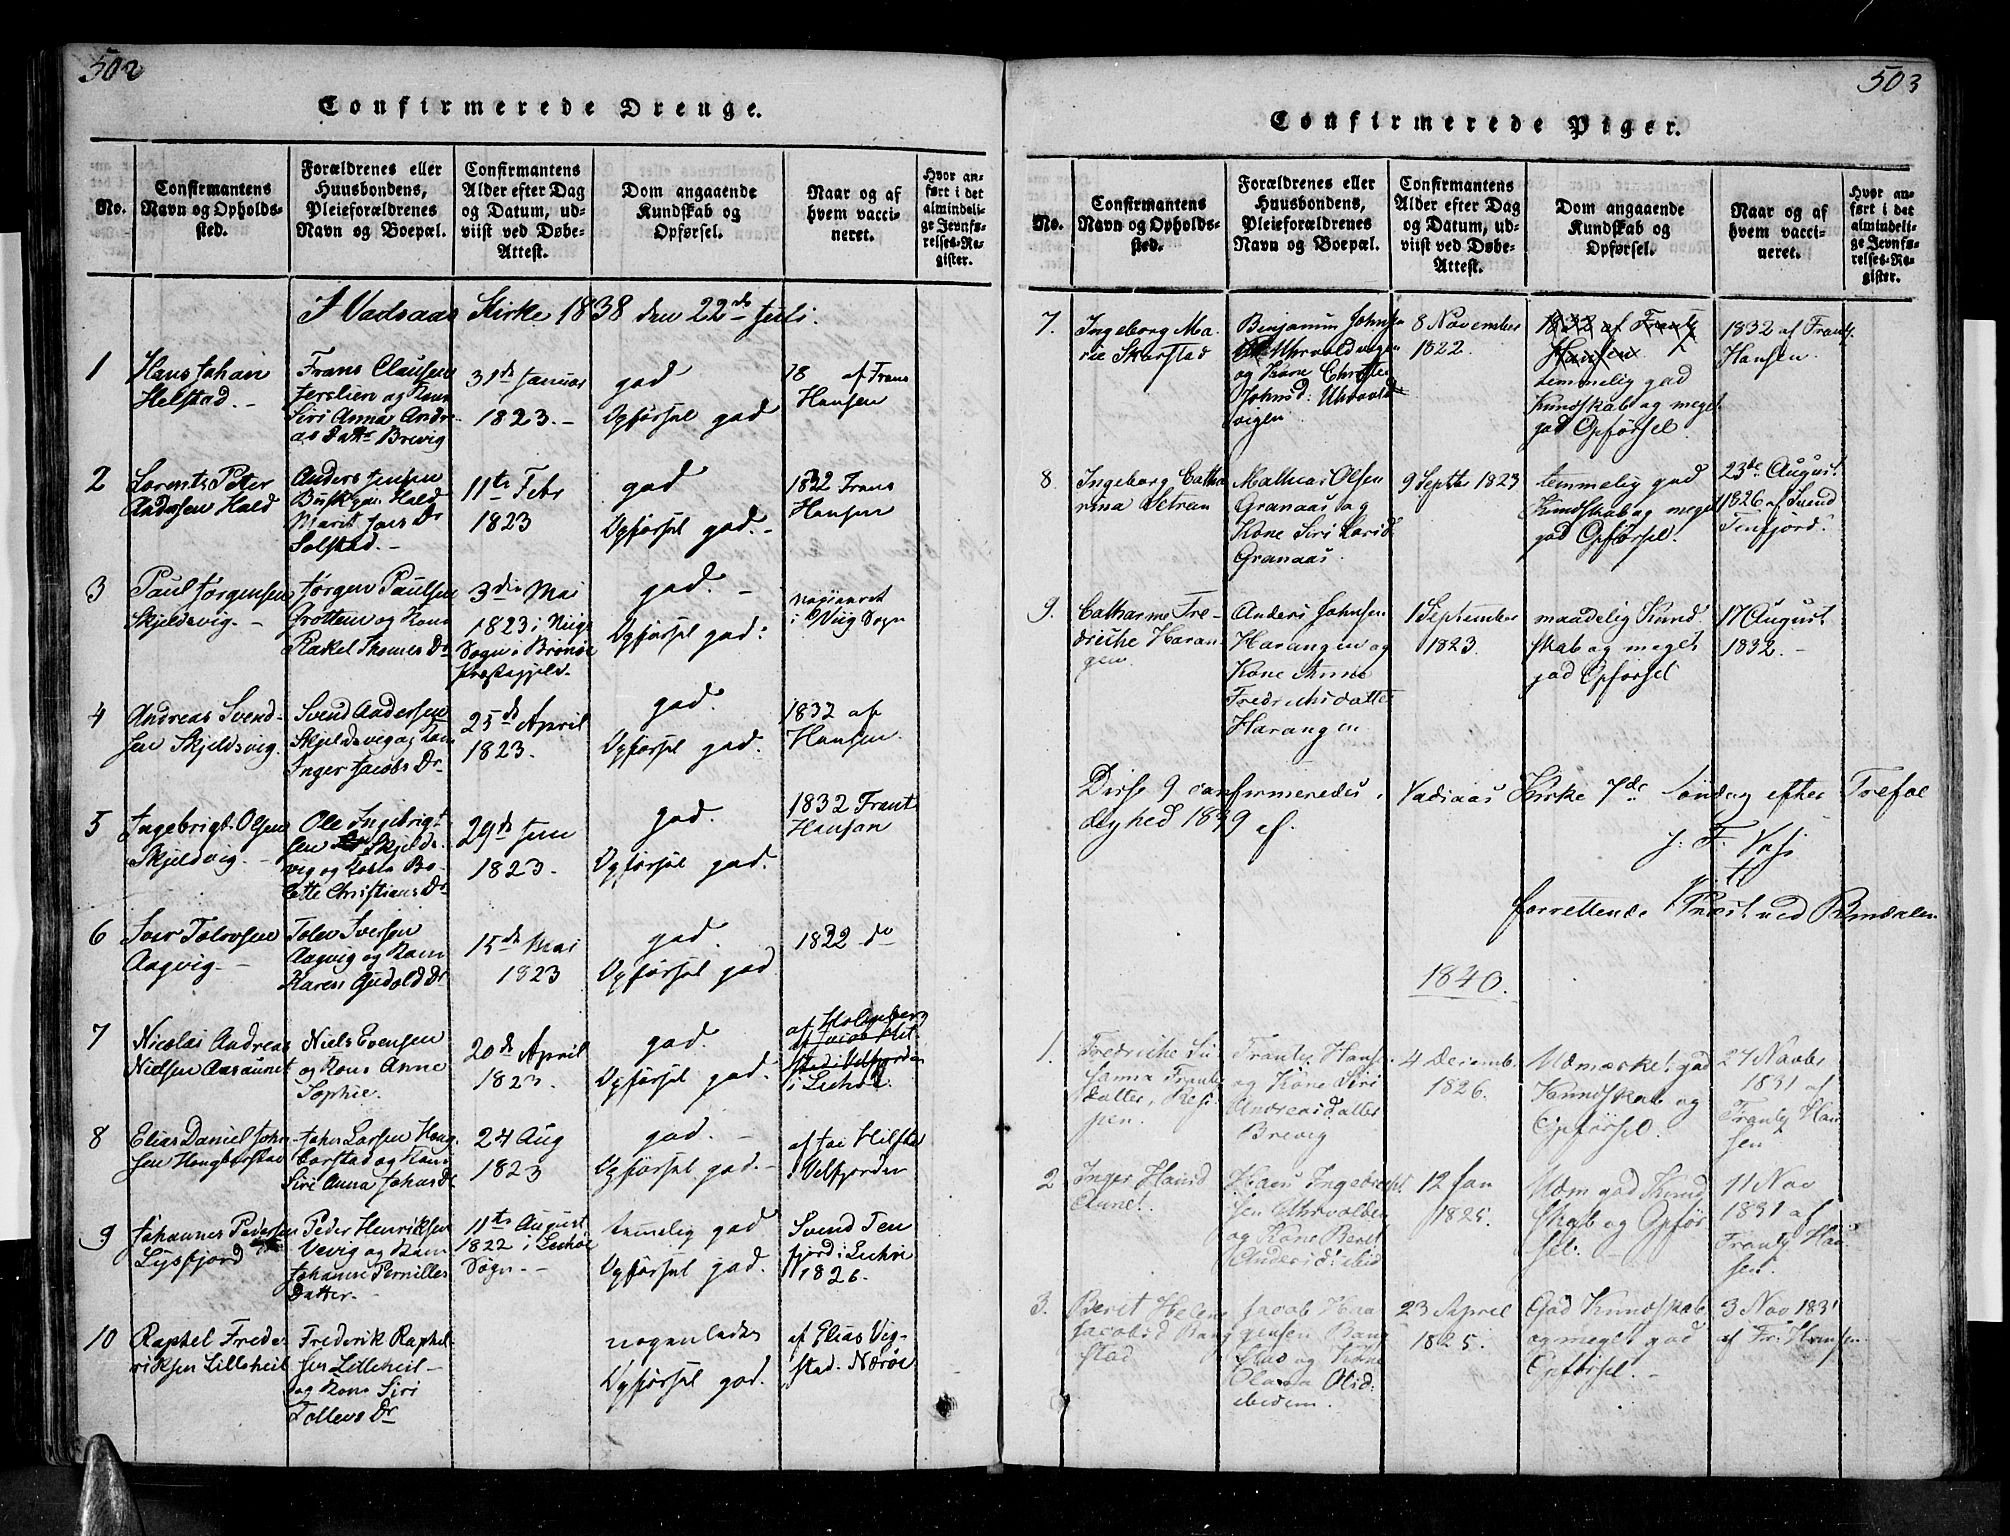 502
Confirmerede Drenge.
No.
Confirmantens
Navn og Opholds-
sted.
Forældrenes eller
Huusbondens,
Pleieforældrenes
Navn og Boepæl.
Confirmantens
Alder efter Dag
og Datum, ud-
viist ved Døbe-
Attest.
Dom angaaende
Kundskab og
Opførsel.
Naar og af
hvem vacci-
neret.
Hvor an-
ført i det
almindeli-
ge Jevnfø-
relses-Re-
gister.
I Vadsaas Kirke 1838 den 22de Juli.
1
Hans Johan
Helstad. -
Frans Clausen
og Kone
Siri Anna Andre-
as Datter Brevig
31de Januar
1823. -
god
Opførsel god
18 af Frans
Hansen
2
Lorents Peter
Andersen Hald
Anders Jensen
Hald
Marit Jens Dr
Solstad. -
11te Febr
1823
god
Opførsel god. -
1832 Frans
Hansen
3
Paul Jørgensen
Skjeldsvig. -
Jørgen Paulsen
Grottem og Kone
Rakel Thomes Dr
3die Mai
1823 i Viigs
Sogn i Brønøe
Præstegjeld.
god. -
Opførsel god.
i Viig Sogn
4
Andreas Svend-
sen Skjeldsvig.
Svend Andersen
Skjeldsvig og Kone
Inger Jacobs Dr
25de April
1823.
god.
Opførsel god.
1832 af
Hansen.
5
Ingebrigt Olsen
Skjeldvig. -
Ole Ingebrigt-
sen Skjelds-
vig og Kone Bo-
lette Christians Dr
29de Juni
1823.
god.
Opførsel god.
1832 Frants
Hansen
6
Iver Tolevsen
Aagvig. -
Tolev Iversen
Aagvig og Kone
Karen Dr
15de Mai
1823
god.
Opførsel god
1832 do
7
Nicolai Andreas
Nielsen Aasaunet
Niels Evensen
og Kone Anne
Sophie.
20de April
1823.
god.
Opførsel god.
af Holmberg
i Lechøe
8
Elias Daniel John-
sen Hongbarstad
Johes Larsen Hong-
barstad og Kone
Siri Anna Johns Dr
24 Aug
1823
god. -
Opførsel god. -
af Jac Hilstad
i Velfjorden
9
Johannes Pedersen
Lysfjord
Peder Henriksen
Vevig og Kone
Johanne Pernilles
Datter. -
11te August
1822 i Lechøe
Sogn. -
temmelig god
Opførsel god.
Svend Ten
fjord i Lechøe
1826.
10
Raphel Frede-
riksen Lilleheil
Frederik Raphel-
sen Lilleheil -
og Kone Siri
Tollevs Dr
nogenledes
Opførsel god.
af Elias Vig-
stad. Nærøe
503
Confirmerede Piger.
No.
Confirmantens
Navn og Opholds-
sted.
Forældrenes eller
Huusbondens,
Pleieforældrenes
Navn og Boepæl.
Confirmantens
Alder efter Dag
og Datum, ud-
viist ved Døbe-
Attest.
Dom angaaende
Kundskab og
Opførsel.
Naar og af
hvem vacci-
neret.
Hvor an-
ført i det
almindeli-
ge Jevnfø-
relses-Re-
gister.
7.
Ingeborg Ma-
rie Skarstad
Benjamin Johns
Uhrvoldvigen
og Kone
Johnsd: Uhrvold
vigen
8 November
1822.
1832 af Frantz
Hansen
temmelig god
Kundskab og meget
god Opførsel.
1832 af Frantz
Hansen.
8
Ingeborg Catha
rina Setran
Mathias Olsen
Granaas og
Kone Siri Larsd
Granaas.
9 Septbr 1823
temmelig god
Kundskab og meget
god Opførsel.
23de August
1826 af Svend
Tenfjord.
9.
Catharine Fre-
driche Haran-
gen
Anders Johnsen
Harangen og
Kone Anne
Fredrichsdatter
Harangen
1 September
1823.
maadelig Kund
skab og meget
god Opførsel
17 August
1832. -
Disse 9 confirmeredes i Vadsaas Kirke 7de Søndag efter Trefol
dighed 1839 af.
J. F. Voss
forrettende Præst ved Bindalen
1840.
1.
Fredriche Su
sanna Frantz
datter,
Frantz Hans
og Kone Siri
Andreasdatter
Brevig
4 Decemb.
1826.
Udmærket god
Kundskab og
Opførsel.
27 Novbr
1831 af
Frantz Han
sen
2
Inger Hansd
Aunet.
Hans Ingebrigt
sen Uhrvolden
og Kone Beret
Andersd: ibid
12 Jan
1825.
Udm god Kund
skab og Opfør
sel. -
11 Nov
1831 af
Frantz Han
sen.
3.
Beret Helene
Jacobsd Bang
stad
Jacob Haa
gensen Bang
stad og Kone
Olava Olsd:
ibidem.
23 April
1825.
God Kundskab
og meget god
Opførsel. -
3 Nov 1831
af Fr: Hansen